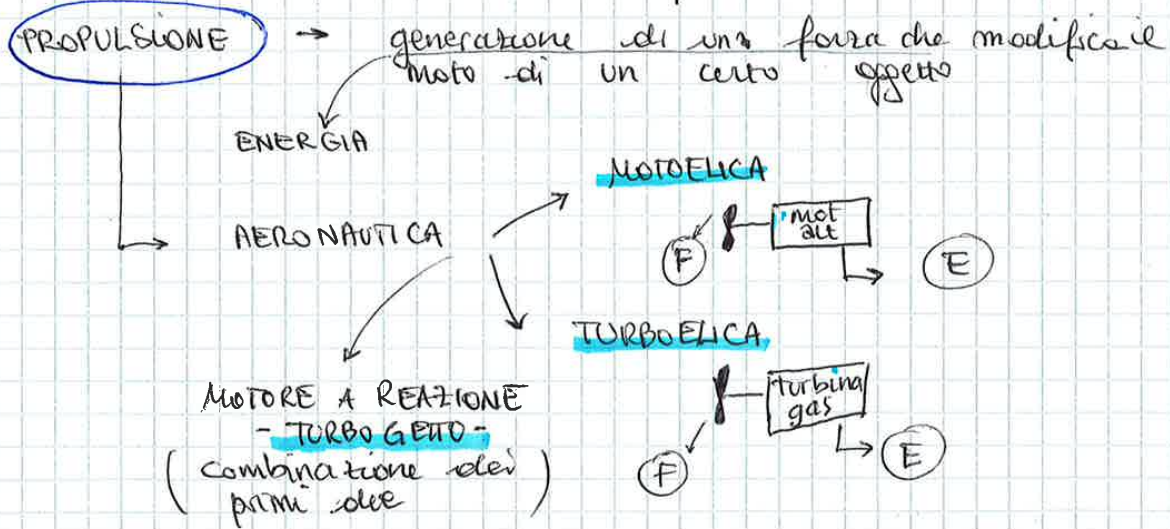 PROPULSIONE → generazione di una forza che modifica il
moto di un certo oggetto
ENERGIA
MOTOELICA
AERONAUTICA
mot
alt
F
E
TURBOELICA
turbina
gas
F
E
MOTORE A REAZIONE
- TURBOGETTO -
(combinazione dei
primi due)